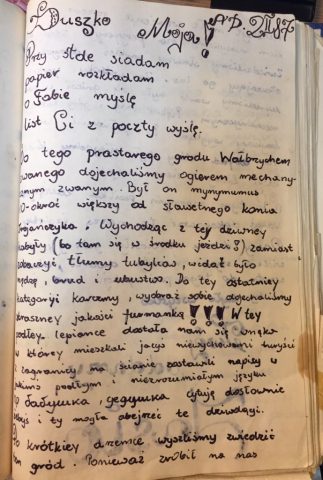 Duszko Moja! AD. 2II87
Przy stole siadam
papier rozkładam
o Tobie myślę
list Ci z poczty wyślę.
Do tego prastarego grodu Wałbrychem
zwanego dojechaliśmy ogierem mechany-
znym zwanym. Był on mynymumus
-okroć większy od sławetnego konia
trojańczyka. Wychodząc z tej dziwnej
kobyły (bo tam się w środku jeździ!) zamiast
zobaczyć tłumy tubylców, widać było
nędzę, brud i ubóstwo. Do tej ostatniej
kategoryi karczmy, wyobraź sobie dojechaliśmy
strasznej jakości furmanką!!! W tej
podłej lepiance dostała nam się wnęka
w której mieszkali jacyś niewychowani turyści
z zagranicy na ścianie zostawili napisy w
jakimś podłym i niezrozumiałym języku
бабушка, дедушка cytuję dosłownie
i ty mogła obejrzeć te dziwolągi.
Po krótkiey drzemce wyszliśmy zwiedzić
ten gród. Ponieważ zrobił na nas